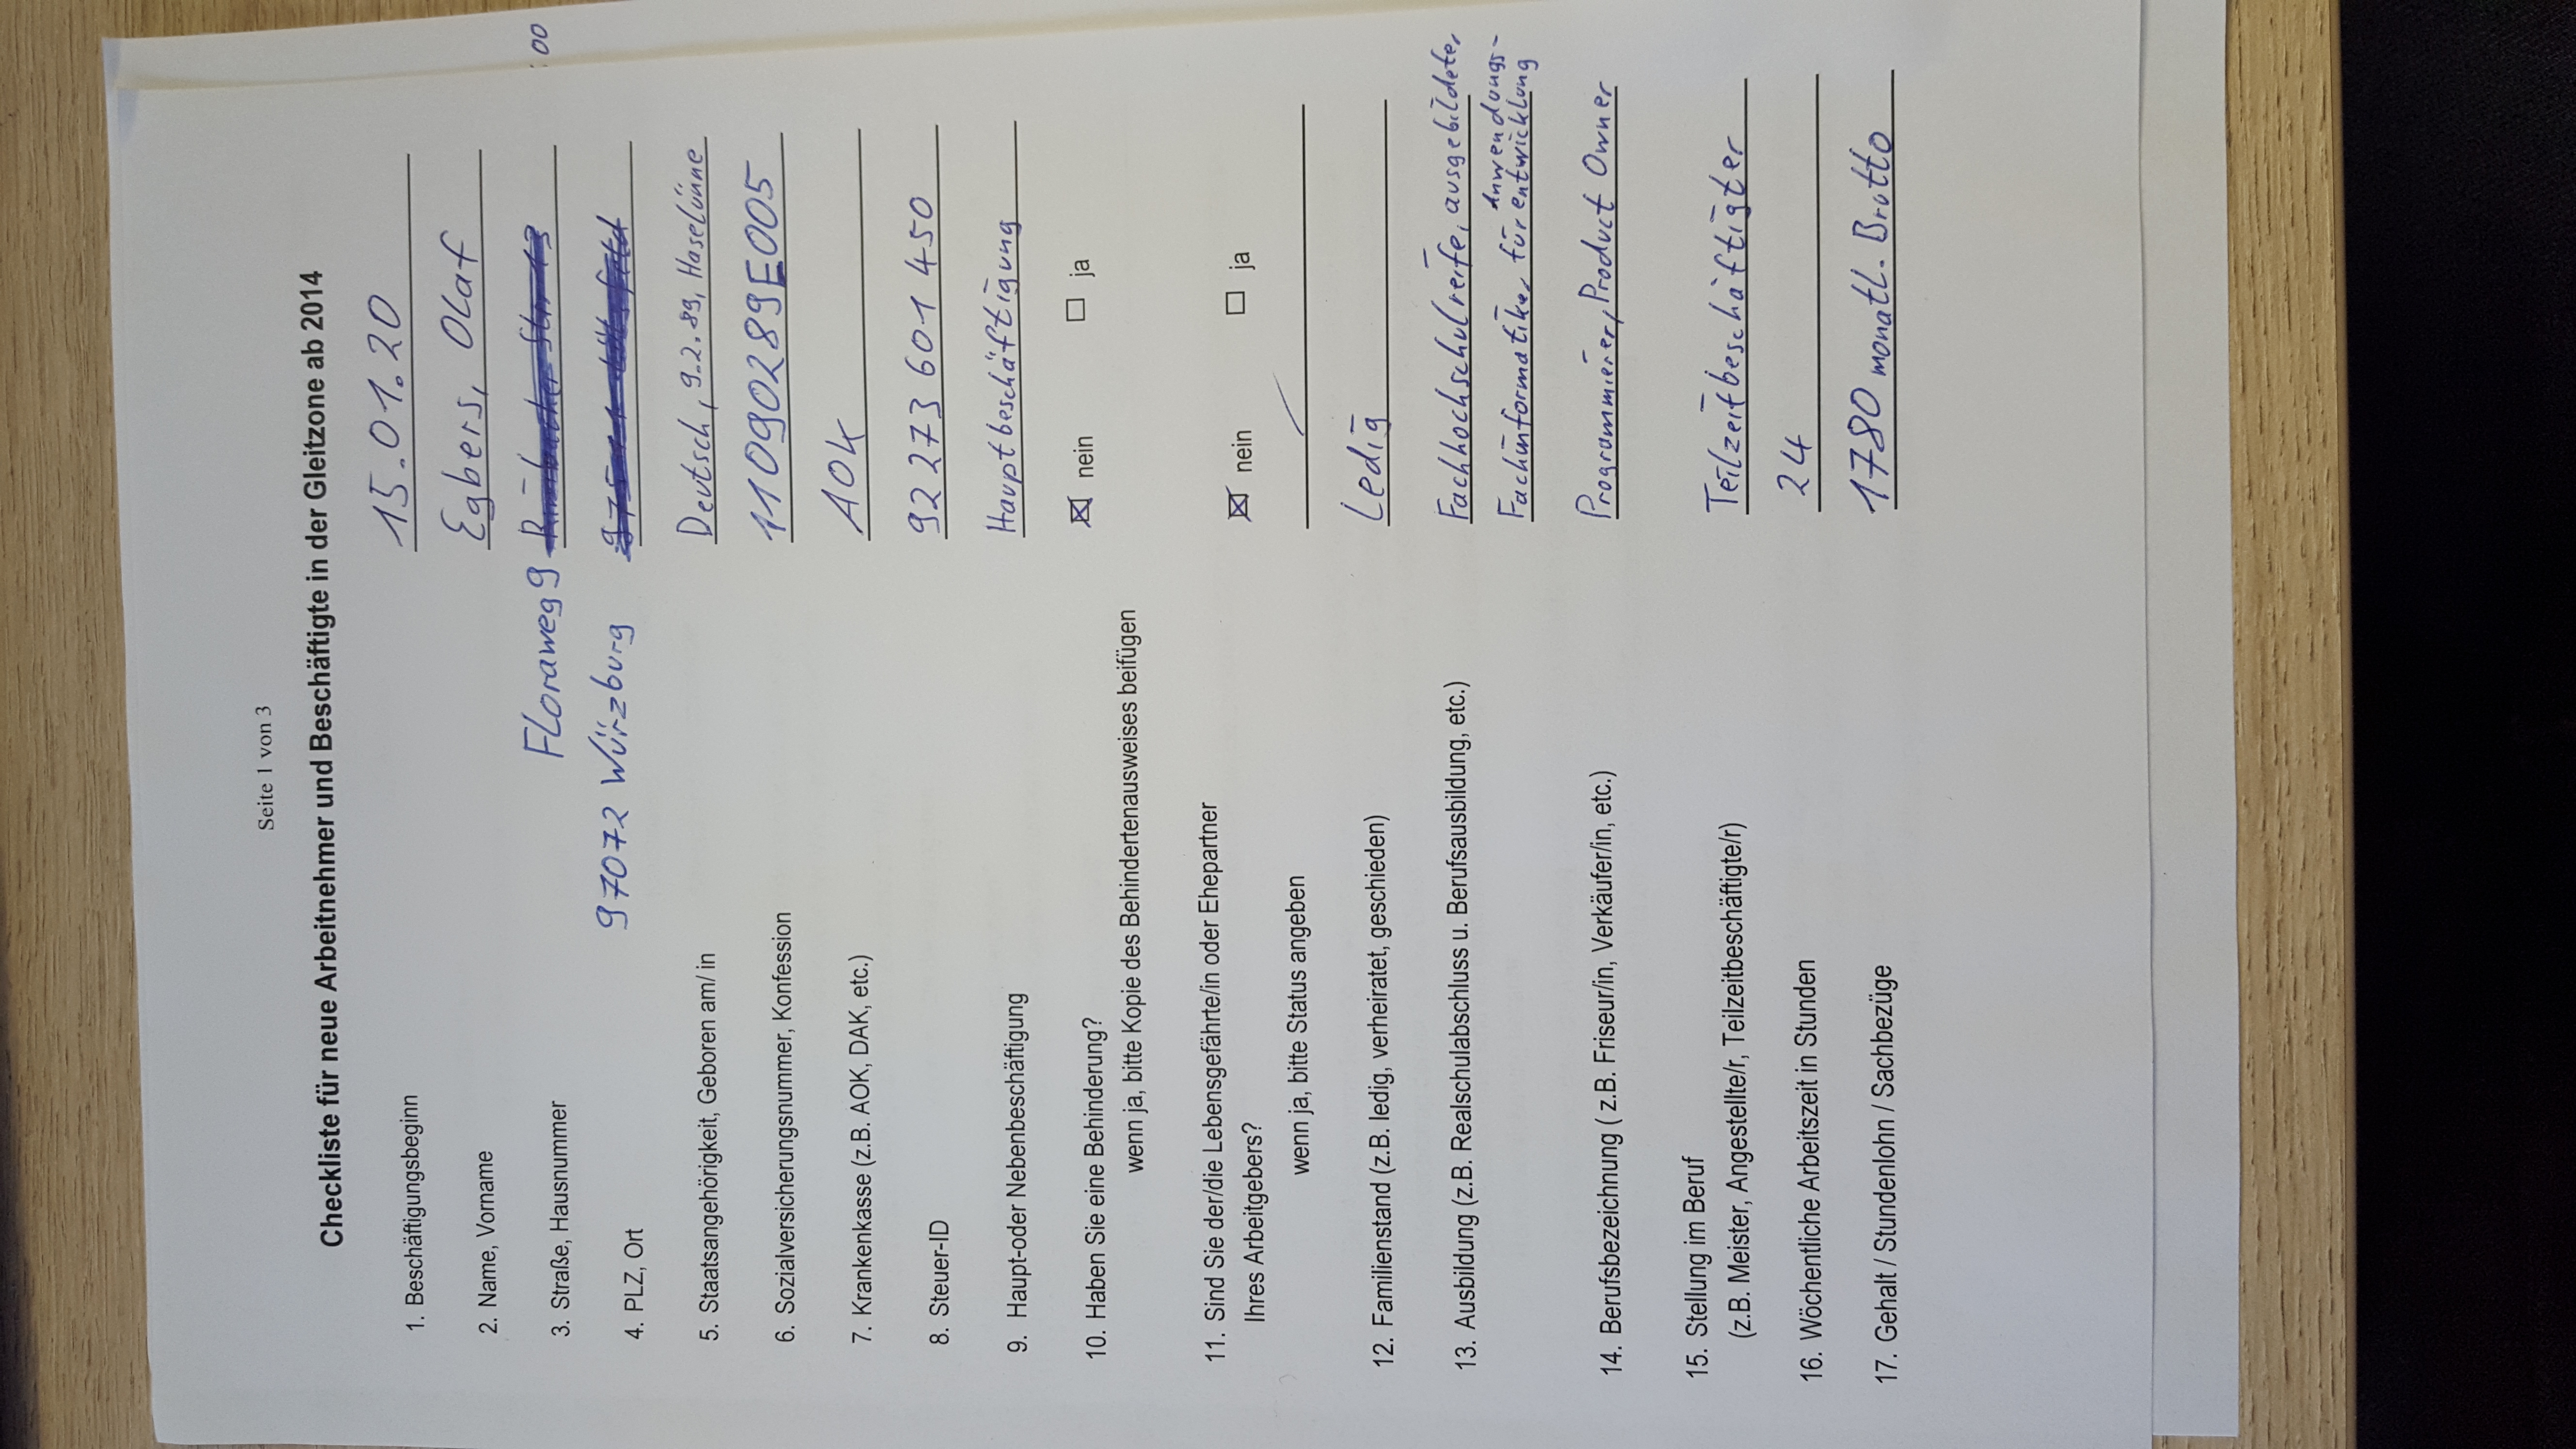 Seite 1 von 3
Checkliste für neue Arbeitnehmer und Beschäftigte in der Gleitzone ab 2014
1. Beschäftigungsbeginn 15.01.20
2. Name, Vorname Egbers, Olaf
3. Straße, Hausnummer Floraweg 9 Str. 13
:00
4. PLZ, Ort 97072 Würzburg
5. Staatsangehörigkeit, Geboren am/ in Deutsch, 9.2.89, Haselünne
6. Sozialversicherungsnummer, Konfession 11090289E005
7. Krankenkasse (z.B. AOK, DAK, etc.) AOK
8. Steuer-ID 92 273 601 450
9. Haupt-oder Nebenbeschäftigung Hauptbeschäftigung
10. Haben Sie eine Behinderung? ☒ nein ☐ ja
wenn ja, bitte Kopie des Behindertenausweises beifügen
11. Sind Sie der/die Lebensgefährte/in oder Ehepartner
Ihres Arbeitgebers? ☒ nein ☐ ja
wenn ja, bitte Status angeben /
12. Familienstand (z.B. ledig, verheiratet, geschieden) Ledig
13. Ausbildung (z.B. Realschulabschluss u. Berufsausbildung, etc.) Fachhochschulreife, ausgebildeter
Fachinformatiker für Anwendungs-
entwicklung
14. Berufsbezeichnung ( z.B. Friseur/in, Verkäufer/in, etc.) Programmierer, Product Owner
15. Stellung im Beruf
(z.B. Meister, Angestellte/r, Teilzeitbeschäftigte/r) Teilzeitbeschäftigter
16. Wöchentliche Arbeitszeit in Stunden 24
17. Gehalt / Stundenlohn / Sachbezüge 1780 monatl. Brutto